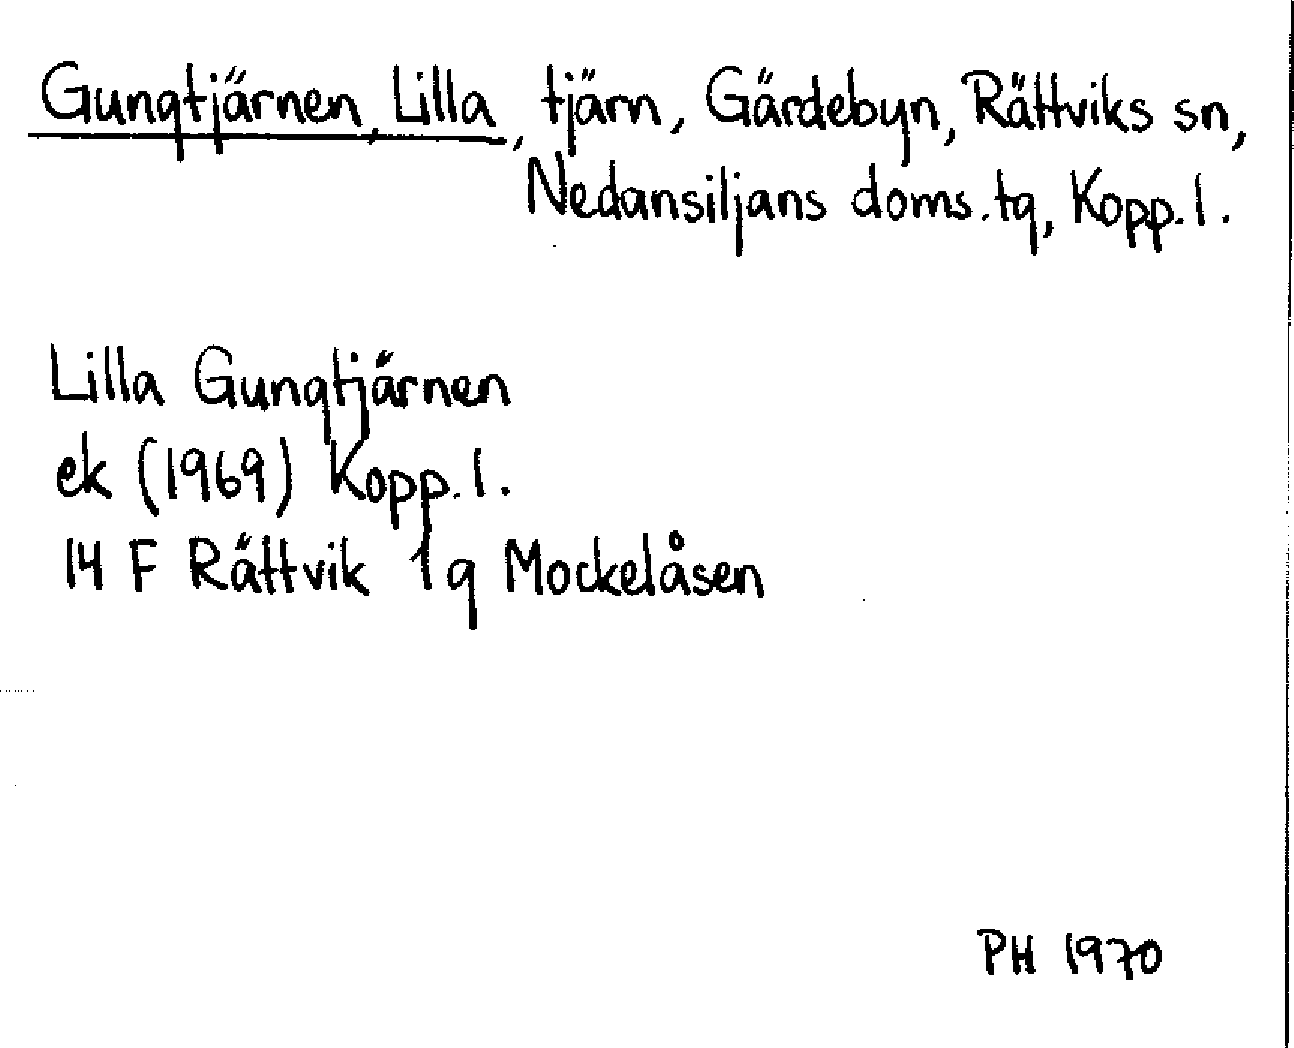 Gungtjärnen, Lilla, tjärn, Gärdebyn, Rättviks sn,
Nedansiljans doms.tg, Kopp.l.
Lilla Gungtjärnen
ek (1969) Kopp.l.
14 F Rättvik 1g Mockelåsen
PH 1970